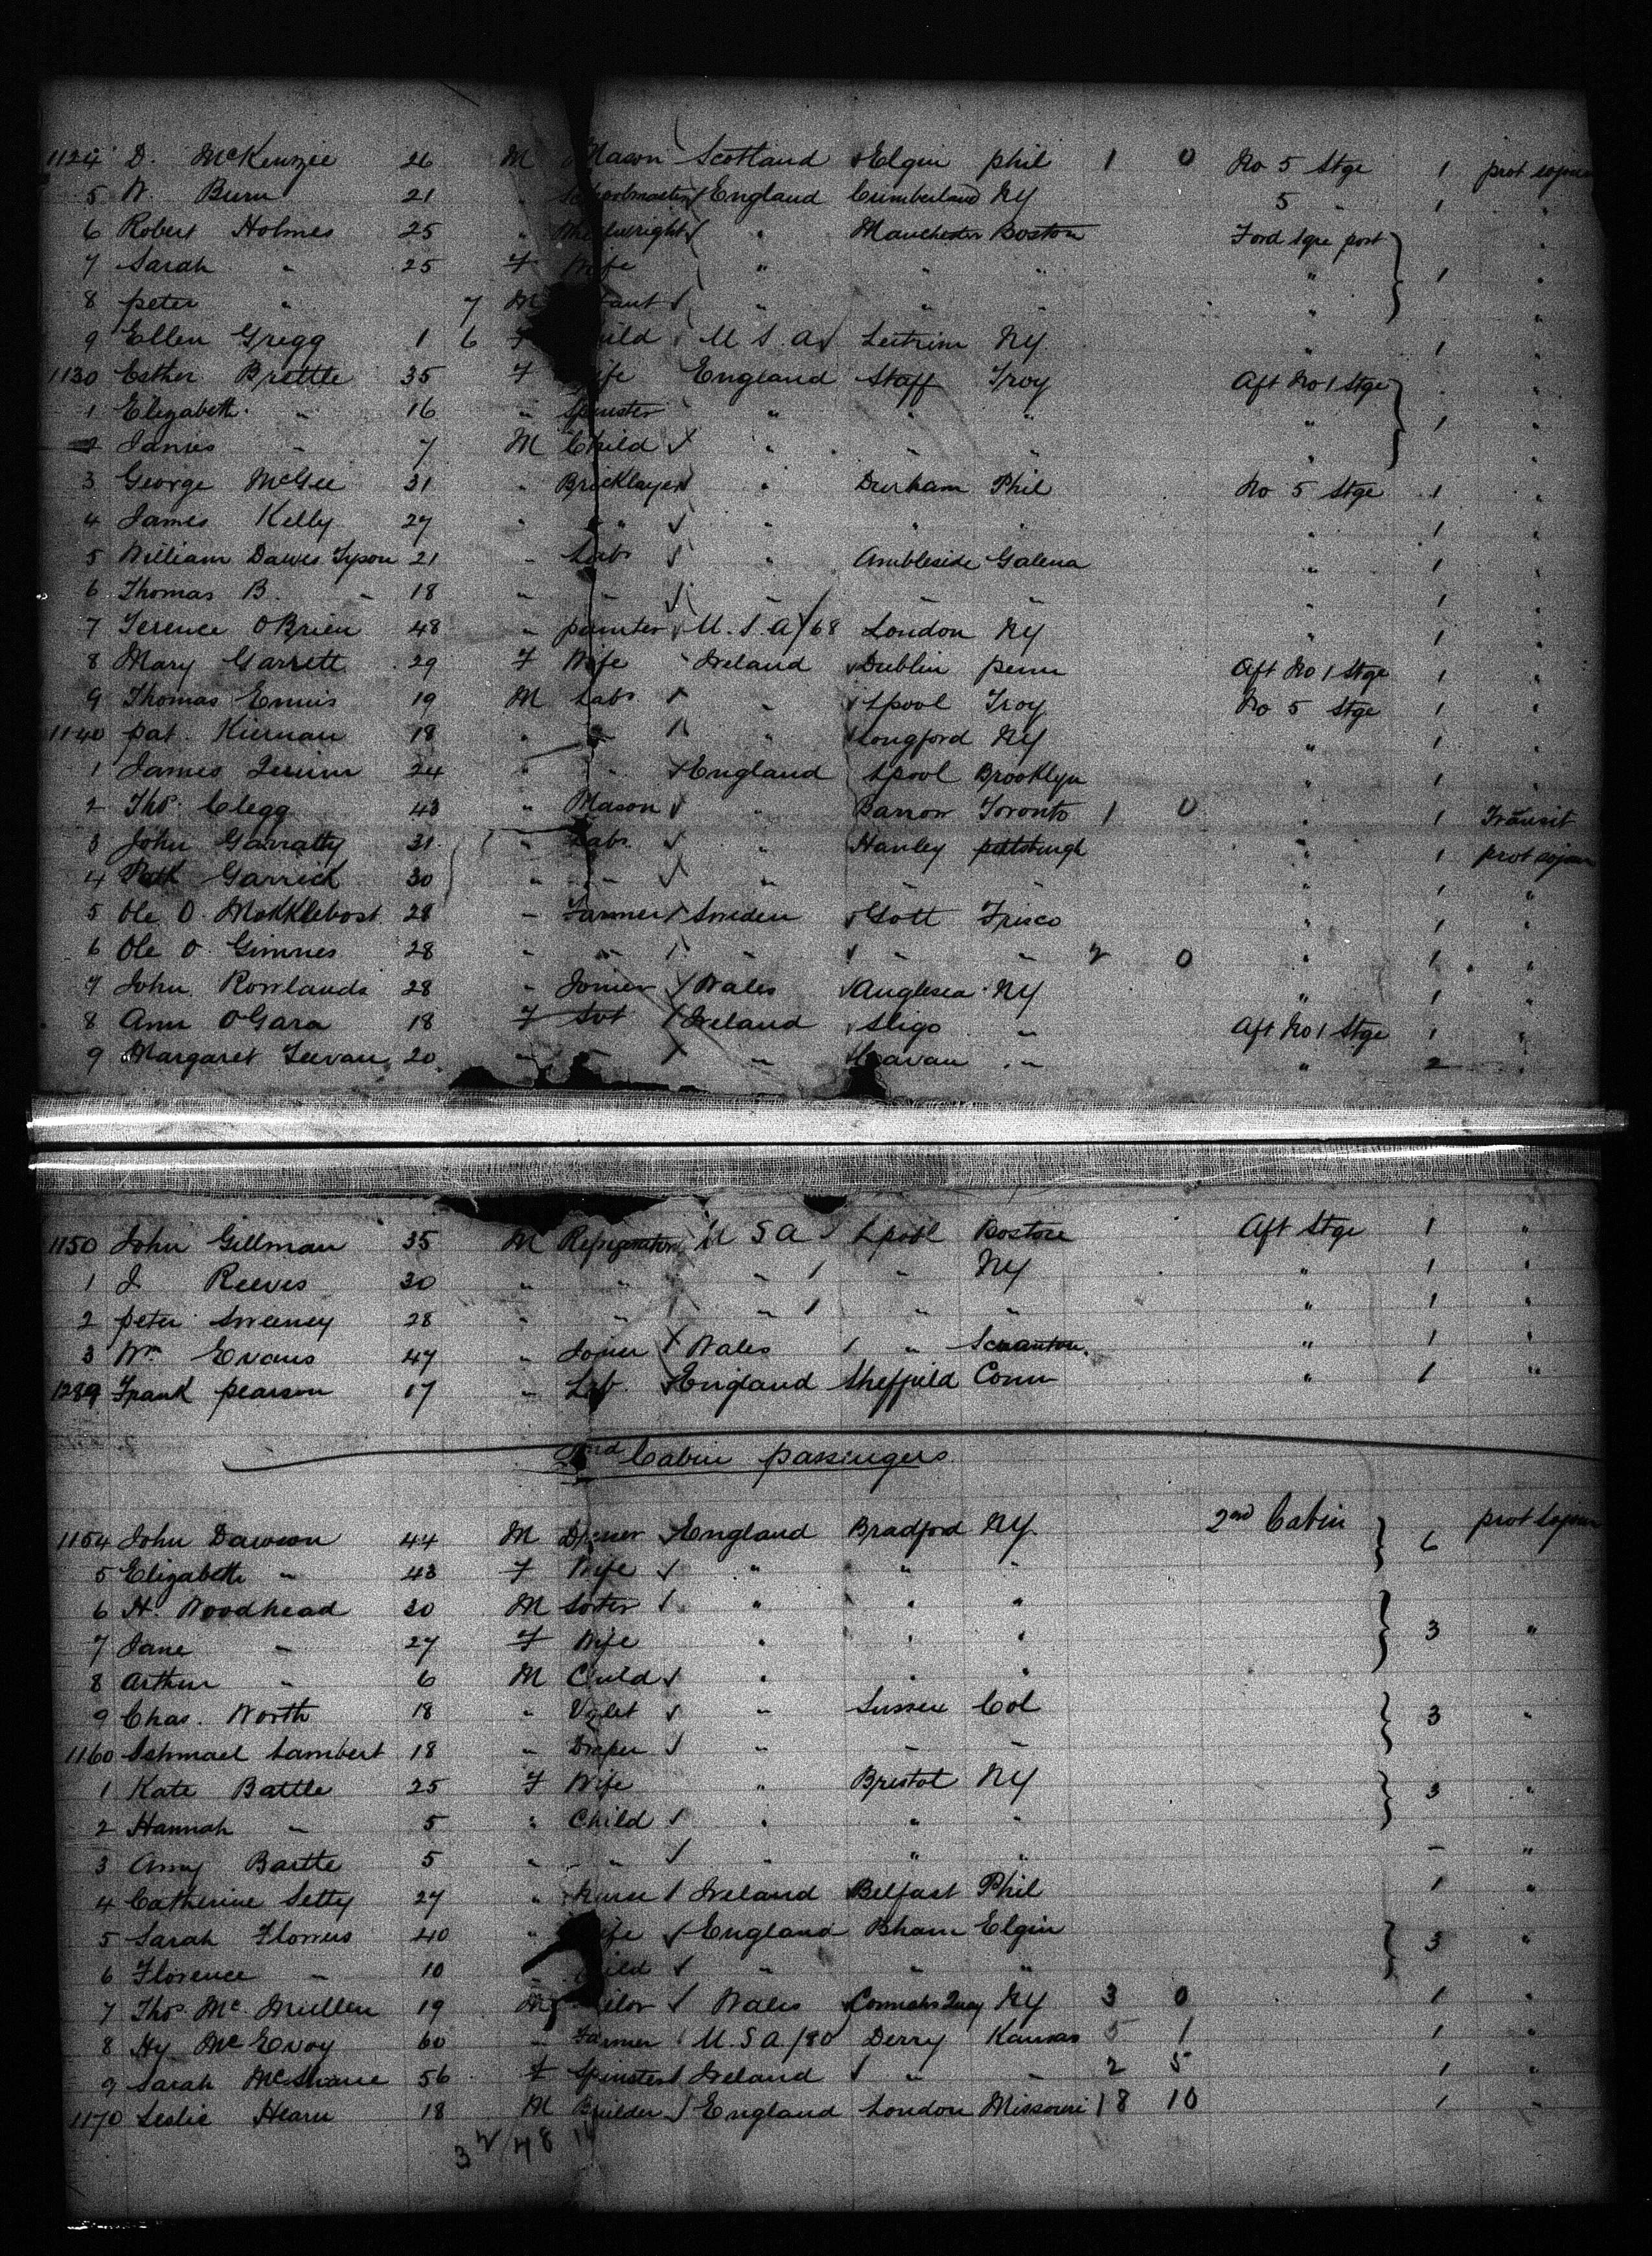 1124 D. McKenzie 26 M Mason Scotland Elgin phil 1 0 No 5 Stge 1 prot sojour
5 W. Burn 21 " Schoolmaster England Cumberland NY 5 " 1 "
6 Robert Holmes 25 " Wheelwright " Manchester Boston Ford Sqre port "
7 Sarah " 25 F Wife " " " " 1 "
8 peter " 7 M Infant " " " " "
9 Ellen Gregg 1 6 F Child U S A Leitrim NY " 1 "
1130 Esther Brettle 35 F Wife England Staff Troy Aft No 1 Stge "
1 Elizabeth " 16 " Spinster " " " " 1 "
2 James " 7 M Child " " " " "
3 George McGee 31 " Bricklayer " Durham Phil No 5 Stge 1 "
4 James Kelly 27 " " " " " " 1 "
5 William Dawes Tyson 21 " Labr " Ambleside Galena " 1 "
6 Thomas B. " 18 " " " " " " 1 "
7 Terence OBrien 48 " painter U.S.A/68 London NY " 1 "
8 Mary Garrett 29 F Wife Ireland Dublin penn Aft No 1 Stge 1 "
9 Thomas Ennis 19 M Labr " Lpool Troy No 5 Stge 1 "
1140 pat. Kiernan 18 " " " Longford NY " 1 "
1 James 24 " " England Lpool Brooklyn " 1 "
2 Thos. Clegg 43 " Mason " Barrow Toronto 1 0 " 1 Transit
3 John Garratty 31 " Labr. " Hanley pittsburgh " 1 prot sojour
4 Patk Garrick 30 " " " " " " 1 "
5 Ole O. Mokklebost 28 " Farmer Sweden Gott Frisco " 1 "
6 Ole O. Gimnes 28 " " " " " 2 0 " 1 "
7 John Rowlands 28 " Joiner Wales Anglesea NY " 1 "
8 Ann OGara 18 F Svt Ireland Sligo " Aft No 1 Stge 1 "
9 Margaret Teevan 20 " " " Cavan " " 2 "
1150 John Gillman 35 M U S A Lpool Boston Aft Stge 1 "
1 J Reeves 30 " " " " NY " 1 "
2 peter Sweeney 28 " " " " " " 1 "
3 Wm Evans 47 " Joiner Wales " Scranton. " 1 "
1289 Frank pearson 17 " Lab. England Sheffield Conn " 1 "
2nd Cabin passingers
1154 John Dawson 44 M England Bradford NY 2nd Cabin 6 prot sojour
5 Elizabeth " 43 F Wife " " "
6 H. Woodhead 30 M Sorter " " "
7 Jane " 27 F Wife " " " 3 "
8 Arthur " 6 M Child " " "
9 Chas. North 18 " Valet " Sussex Col 3 "
1160 Ishmael Lambert 18 " Draper " " "
1 Kate Battle 25 F Wife " Bristol NY 3 "
2 Hannah " 5 " Child " " "
3 Amy Battle 5 " " " " " - "
4 Catherine Setty 27 " Nurse Ireland Belfast Phil 1 "
5 Sarah Flowers 40 " Wife England Bham Elgin 3 "
6 Florence " 10 " Child " " "
7 Thos. Mc Mullen 19 M Wales Connahs Quay NY 3 0 1 "
8 Hy McEvoy 60 " Farmer U.S A/80 Derry Kansas 5 1 1 "
9 Sarah McShane 56 F Spinster Ireland " " 2 5 1 "
1170 Leslie Hearn 18 M Builder England London Missouri 18 10 1 "